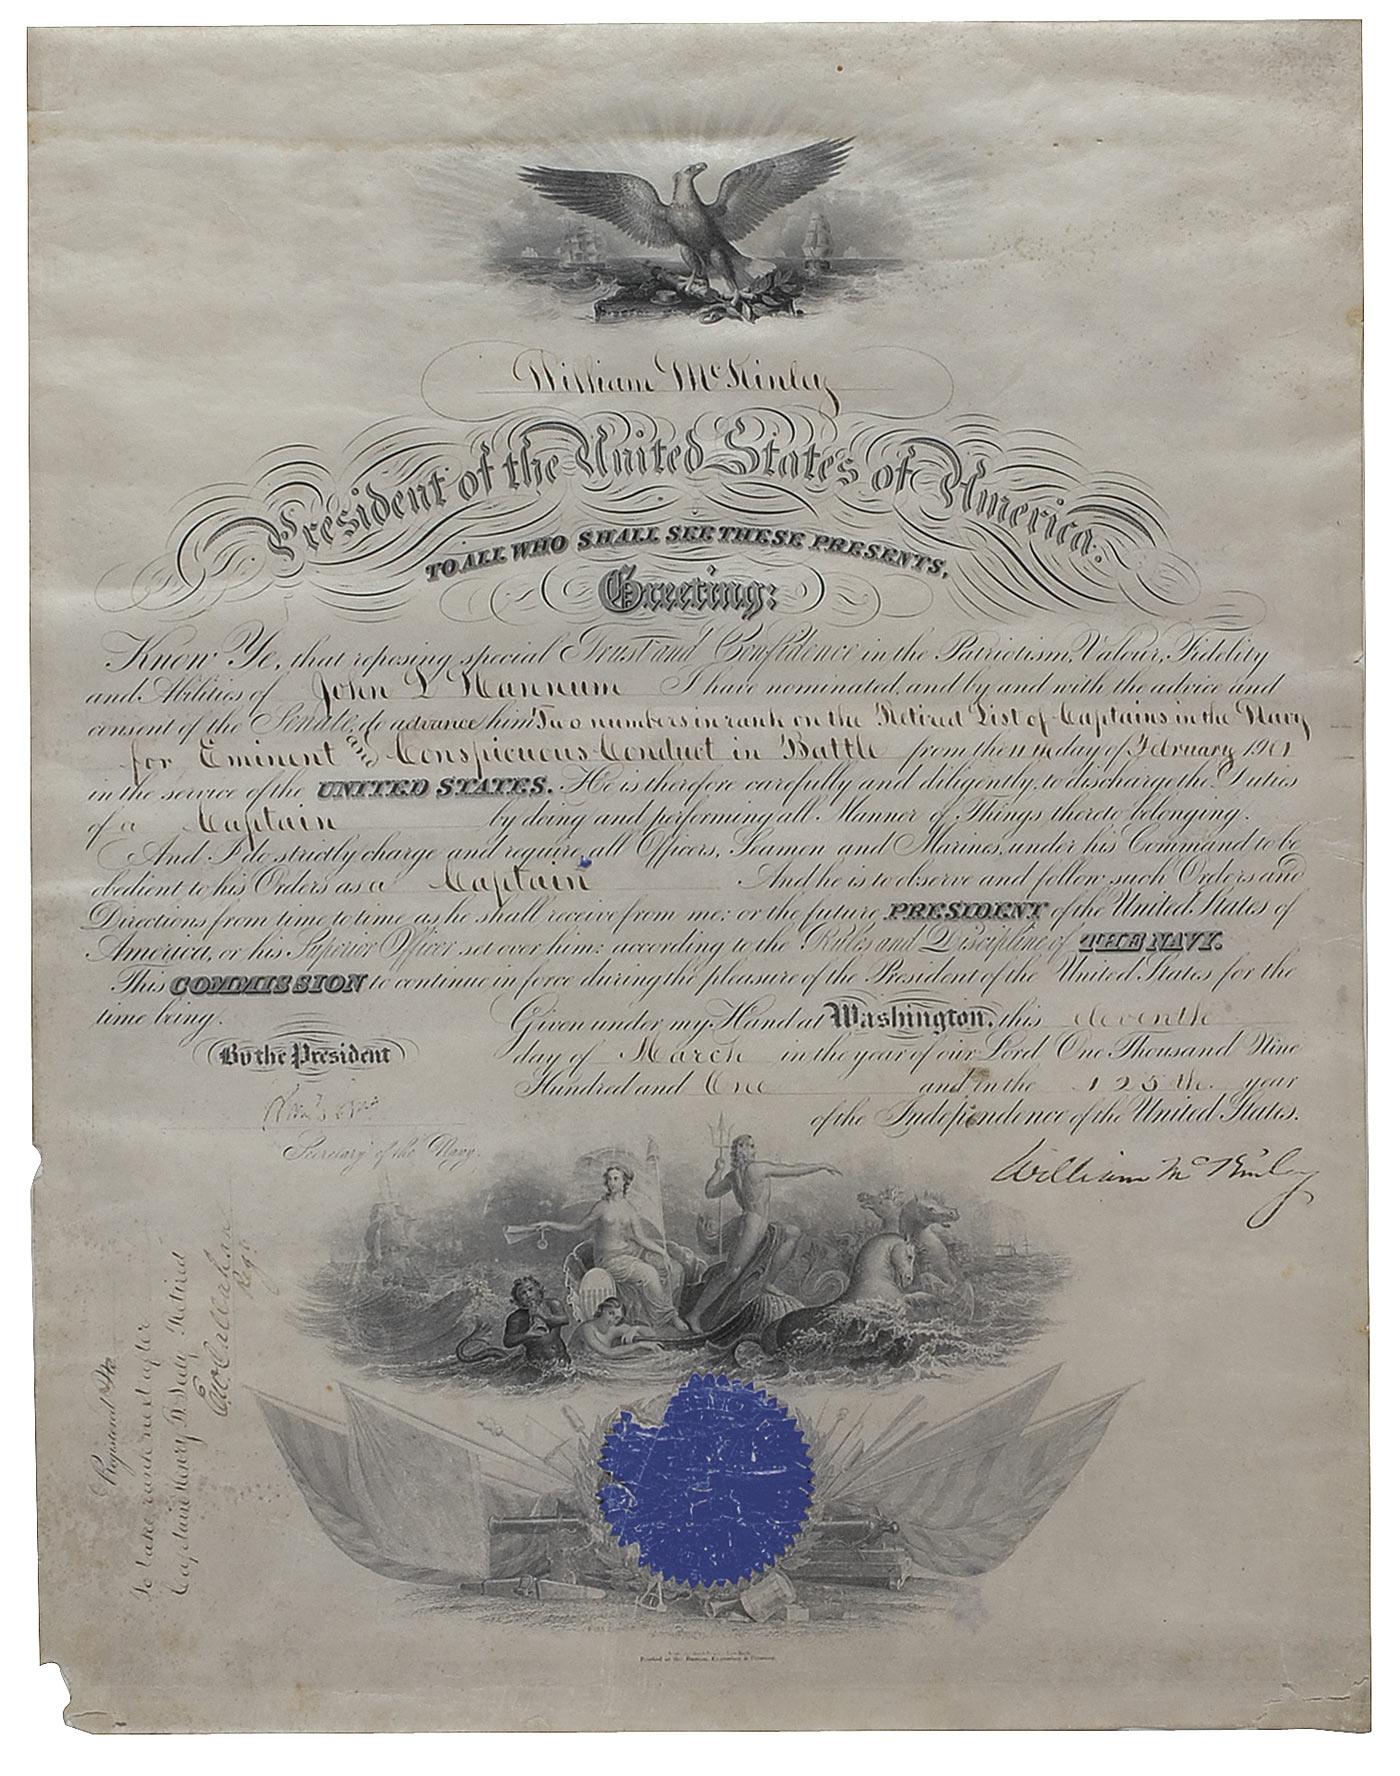 William McKinley
President of the United States of America.
TO ALL WHO SHALL SEE THESE PRESENTS,
Greeting:
Know Ye, that reposing special Trust and Confidence in the Patriotism, Valour, Fidelity
and Abilities of John L Hannum I have nominated, and by and with the advice and
consent of the Senate, do advance him Two numbers in rank on the Retired List of Captains in the Navy
for Eminent and Conspicuous Conduct in Battle from the 11th day of February 1901
in the service of the UNITED STATES. He is therefore carefully and diligently to discharge the Duties
of a Captain by doing and performing all Manner of Things thereto belonging.
And I do strictly charge and require, all Officers, Seamen and Marines, under his Command to be
obedient to his Orders as a Captain And he is to observe and follow such Orders and
Directions from time to time as he shall receive from me: or the future PRESIDENT of the United States of
America, or his Superior Officer set over him: according to the Rules and Discipline of THE NAVY.
This COMMISSION to continue in force during the pleasure of the President of the United States for the
time being.
Given under my Hand at Washington, this eleventh
By the President
day of March in the year of our Lord One Thousand Nine
Hundred and One and in the 125th year
of the Independence of the United States.
Secretary of the Navy.
William McKinley
Registered No
To take rank next after
Captain Henry B. Seely Retired
Regr.
Printed at the Bureau, Engraving & Printing.